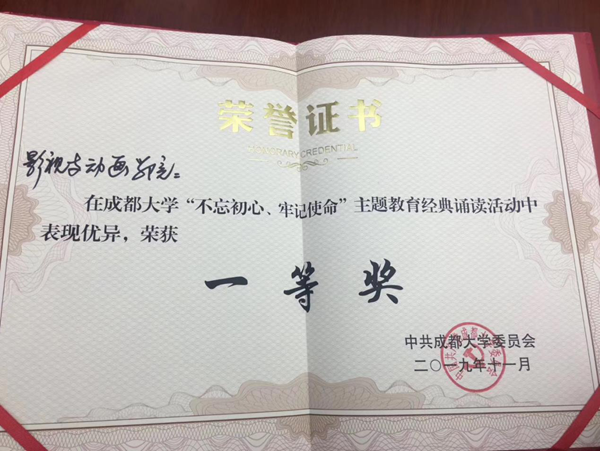 荣誉证书
HONORARY CREDENTIAL
影视与动画学院：
在成都大学“不忘初心、牢记使命”主题教育经典诵读活动中
表现优异，荣获
一等奖
中共成都大学委员会
二〇一九年十一月